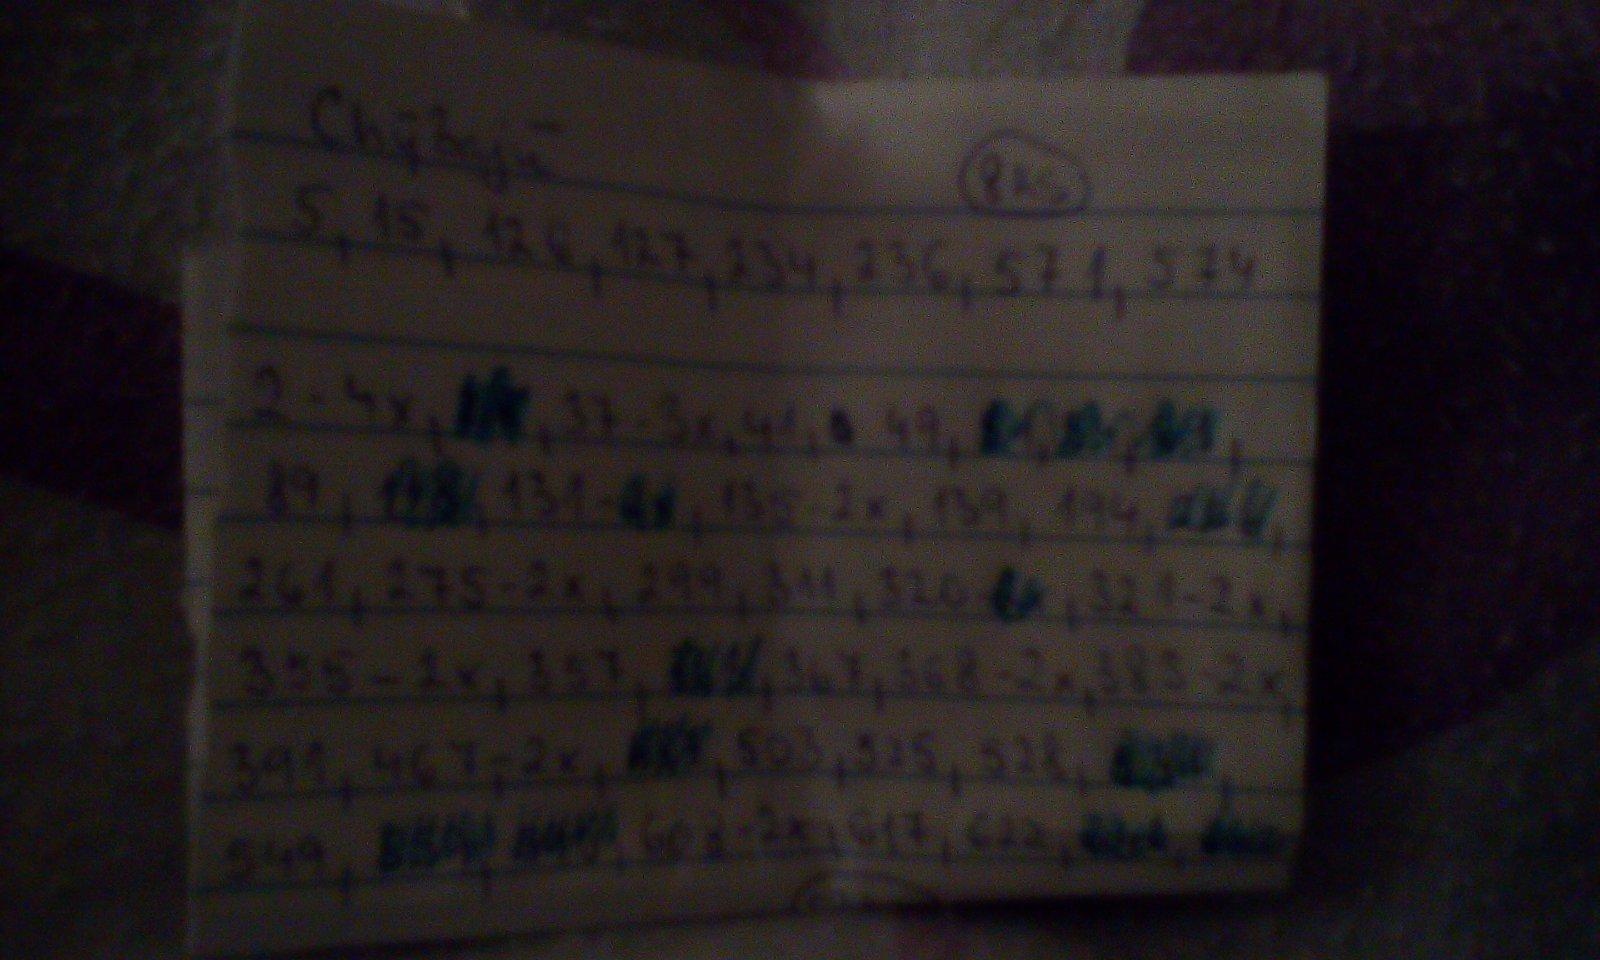 Chýbajú
5, 15, 126, 127, 234, 236, 571, 574
2-4x, 37-3x, 41, 49,
89, 131-, 135-2x, 139, 194,
261, 275-2x, 299, 311, 320-, 321-2x,
355-2x, 357, 367, 368-2x, 383-2x
391, 467-2x, 503, 525, 528,
549, 603-2x, 617, 622,